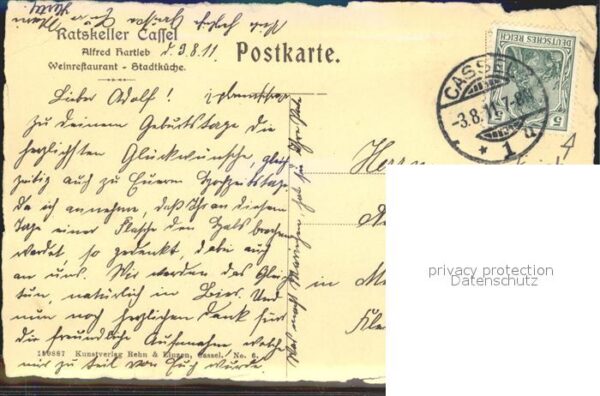 Ratskeller Cassel
Alfred Hartleb
Weinrestaurant - Stadtküche.
d. 3.8.11.
Postkarte.
DEUTSCHES REICH
5
CASSEL
-3.8.11.7-8
* 1 u
Lieber Adolf!
zu Deinem Geburtstage die
herzlichsten Glückwünsche, gleich
zeitig auch zu Euerm Hochzeitstage
Da ich annehme, daß Ihr an diesem
Tage einer Flasche den Hals brechen
werdet, so gedenkt dabei auch
an uns. Wir werden das Glei
tun, natürlich in Bier. Und
nun noch herzlichen Dank für
die freundliche Aufnahme welche
mir zu teil von Euch wurde.
Herrn
in M
Kle
150887 Kunstverlag Rehn & Lingen, Cassel. No. 6.
privacy protection
Datenschutz